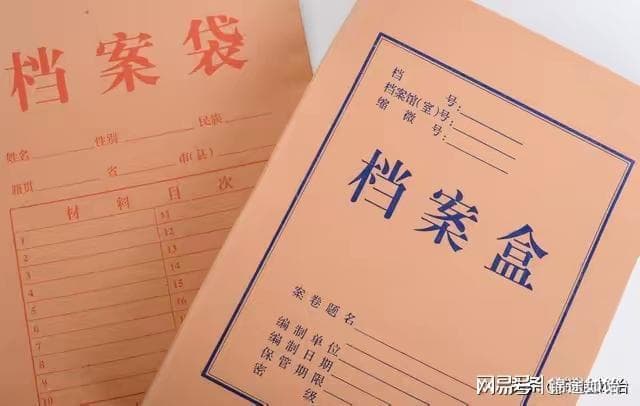 档案袋
姓名 性别 民族
籍贯 省 市(县)
材料目次
1 11
2 12
3 13
4 14
5 15
6 16
7
8
9
10
档 号:
档案馆(室)号:
缩 微 号:
档案盒
案卷题名
编制单位
编制日期
保管期限
密 级
网易号